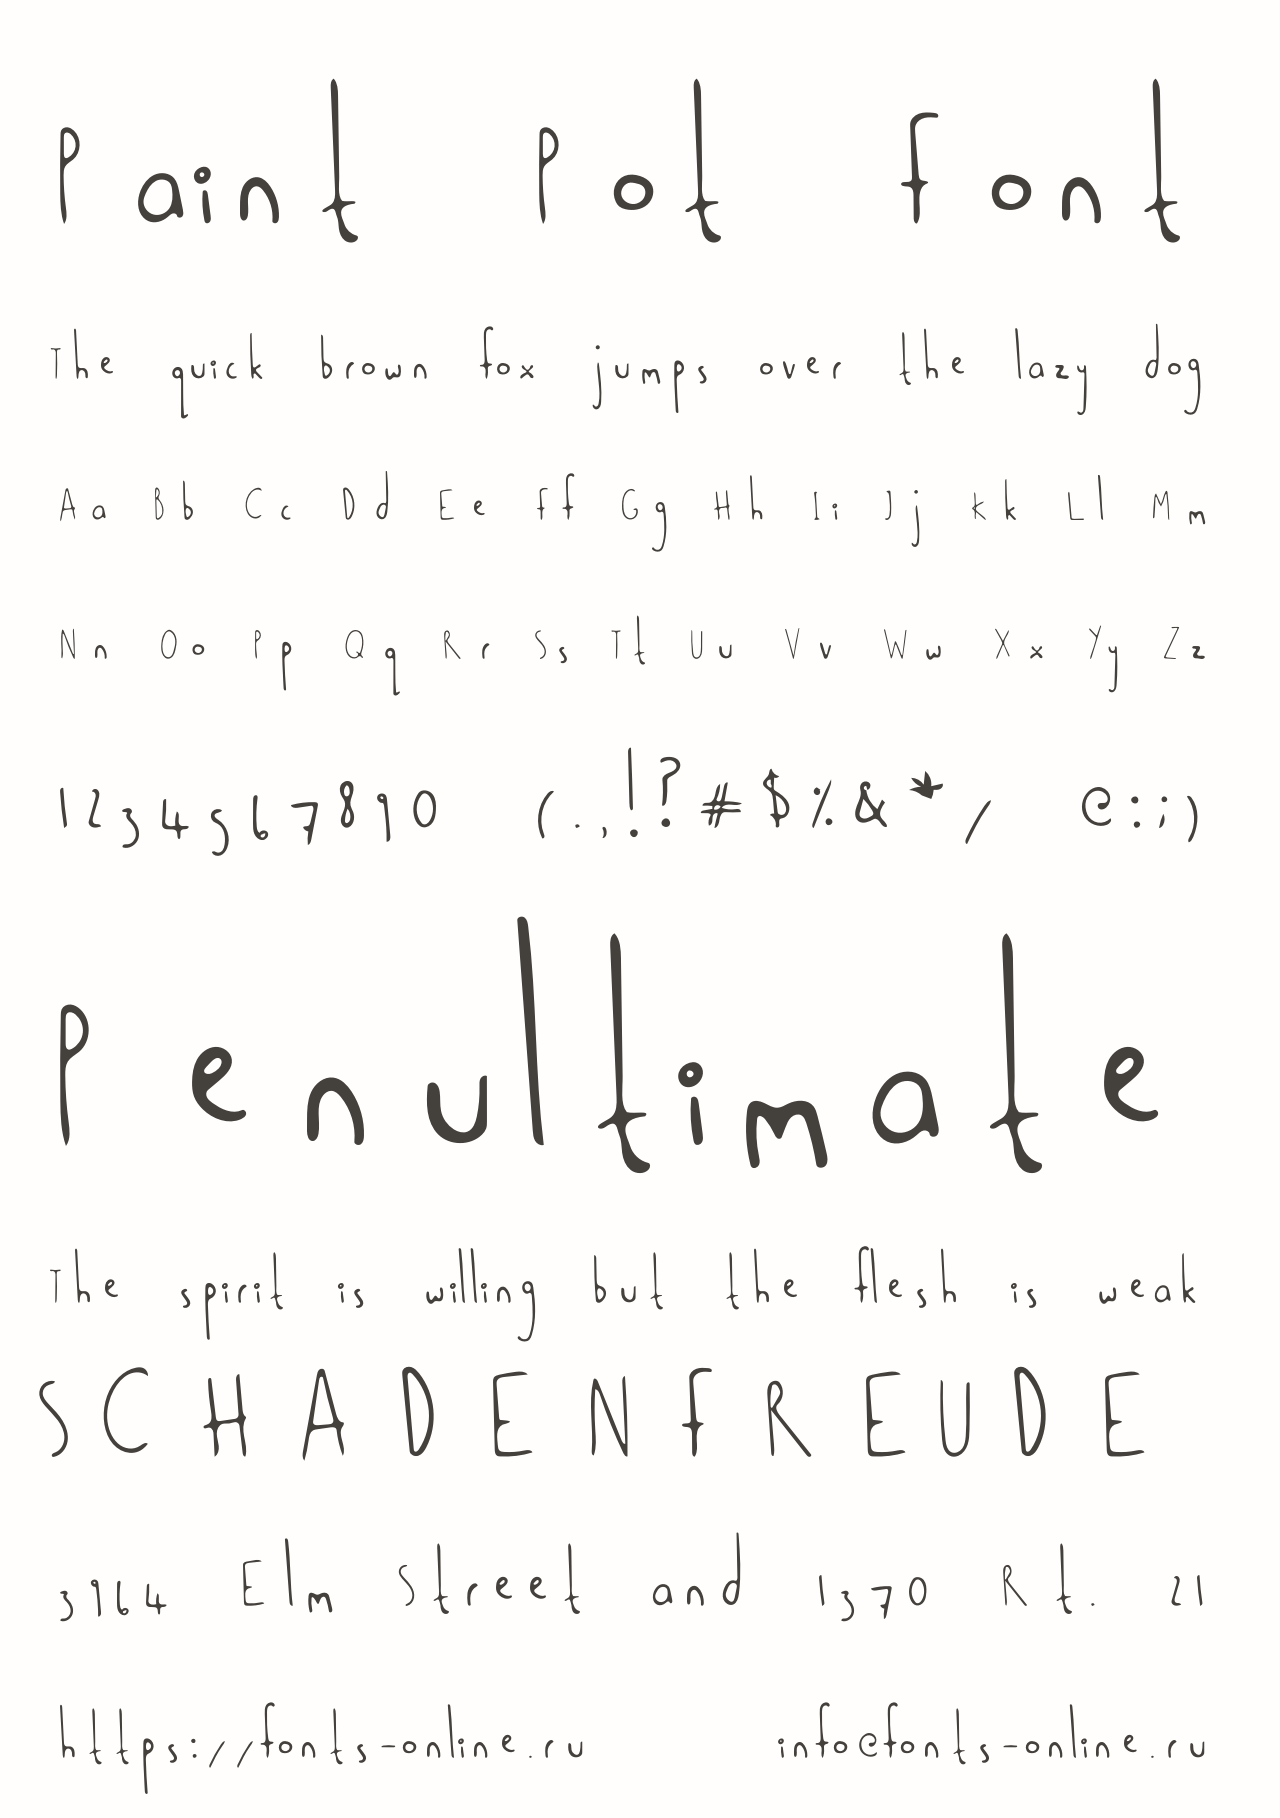 Paint Pot font
The quick brown fox jumps over the lazy dog
Aa Bb Cc Dd Ee Ff Gg Hh Ii Jj Kk Ll Mm
Nn Oo Pp Qq Rr Ss Tt Uu Vv Ww Xx Yy Zz
1234567890 (.,!?#$%&*/ @:;)
Penultimate
The spirit is willing but the flesh is weak
SCHADENFREUDE
3964 Elm Street and 1370 Rt. 21
https://fonts-online.ru info@fonts-online.ru